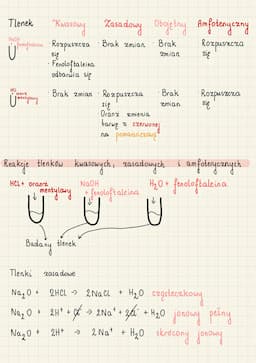 Tlenek Kwasowy Zasadowy Obojętny Amfoteryczny
NaOH + fenoloftaleina
Rozpuszcza się Brak zmian Brak zmian Rozpuszcza się
Fenoloftaleina odbarwia się
HCl + oranż metylowy
Brak zmian Rozpuszcza się Brak zmian Rozpuszcza się
Oranż zmienia barwę z czerwonej na pomarańczową
Reakcje tlenków kwasowych, zasadowych i amfoterycznych
HCl + oranż metylowy NaOH + fenoloftaleina H₂O + fenoloftaleina
Badany tlenek
Tlenki zasadowe
Na₂O + 2HCl → 2NaCl + H₂O cząsteczkowy
Na₂O + 2H⁺ + 2Cl⁻ → 2Na⁺ + 2Cl⁻ + H₂O jonowy pełny
Na₂O + 2H⁺ → 2Na⁺ + H₂O skrócony jonowy